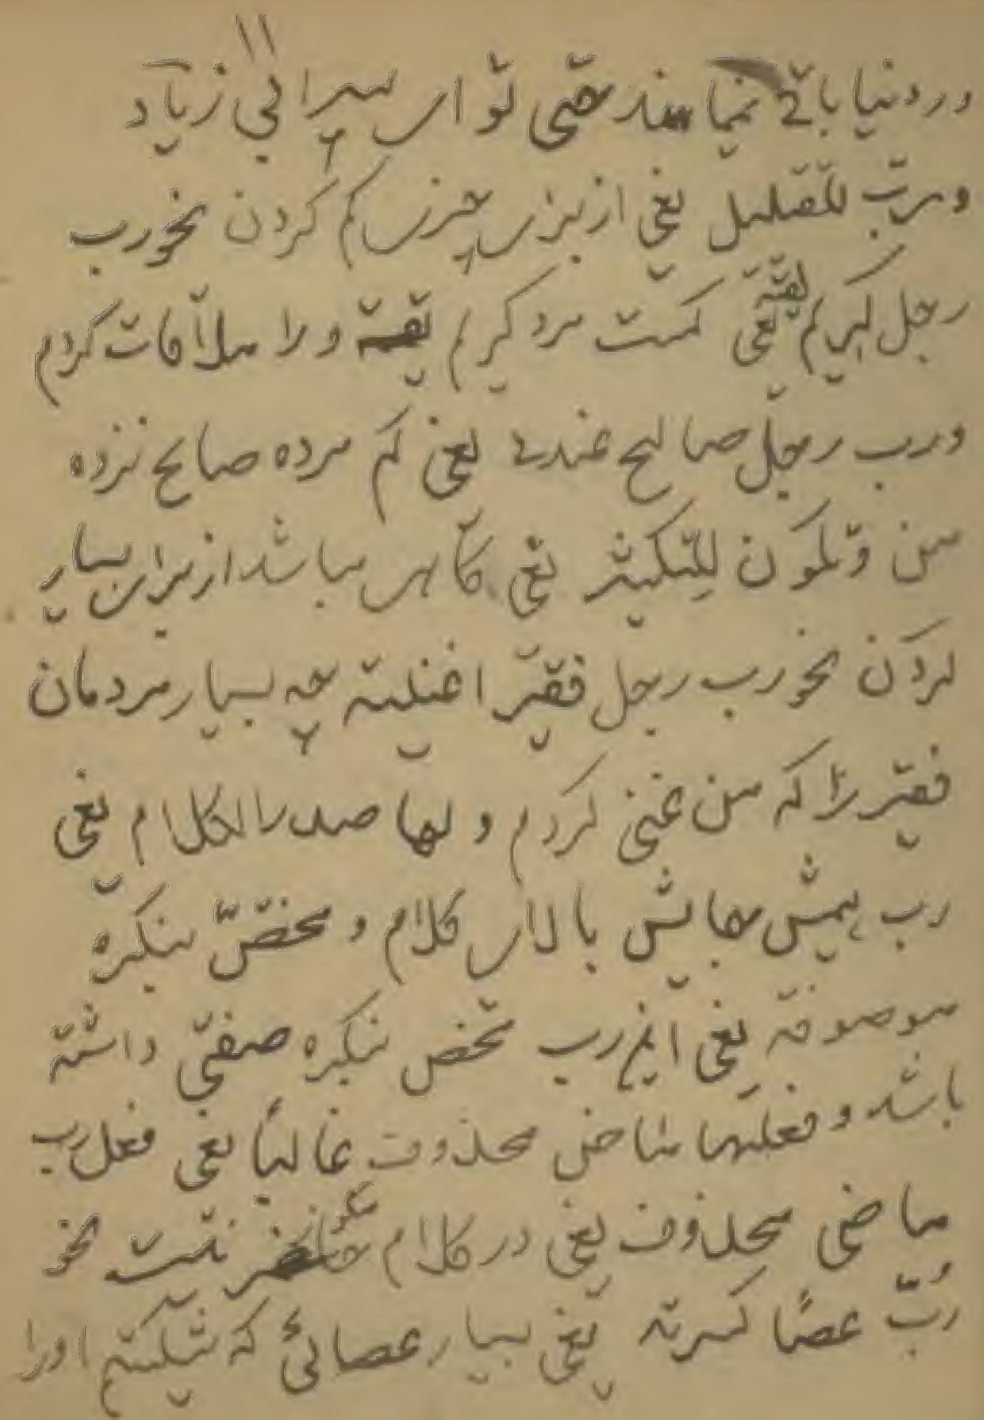 در دنیا باقی نمیماند حتی تو اسیرانی زیاد
ورب للتقلیل یعنی از برای چیزی کم کردن نحو رب
رجل کریم لقیته یعنی کمست مرد کریم و را ملاقات کردم
ورب رجل صالح عندی یعنی کم مرده صالح نزده
من وتکون للتکثیر یعنی کاهی میباشد از برای بسیار
کردن نحو رب رجل فقیر اغنیته چه بسیار مردمان
فقیر را که من غنی کردم و لها صدر الکلام یعنی
رب همیش جایش بالای کلام و مختص بنکرة
موصوفة یعنی اینم رب مختص نکره صفتی داشته
باشد و فعلها ماضی محذوف غالبًا یعنی فعل رب
ماضی محذوف یعنی در کلام نیست نحو
رُبّ عصًا کسرته یعنی بسیار عصائی که شکستم اورا